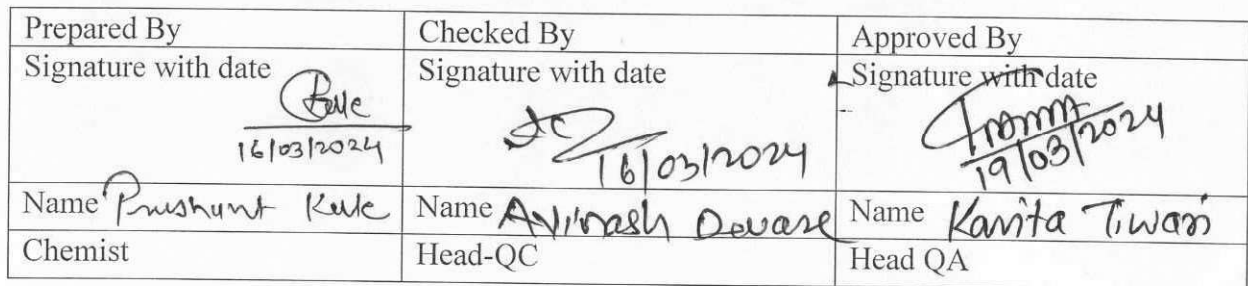 Prepared By Checked By Approved By
Signature with date Signature with date Signature with date
16/03/2024 16/03/2024 19/03/2024
Name Prashant Kale Name Avinash Devare Name Kavita Tiwari
Chemist Head-QC Head QA